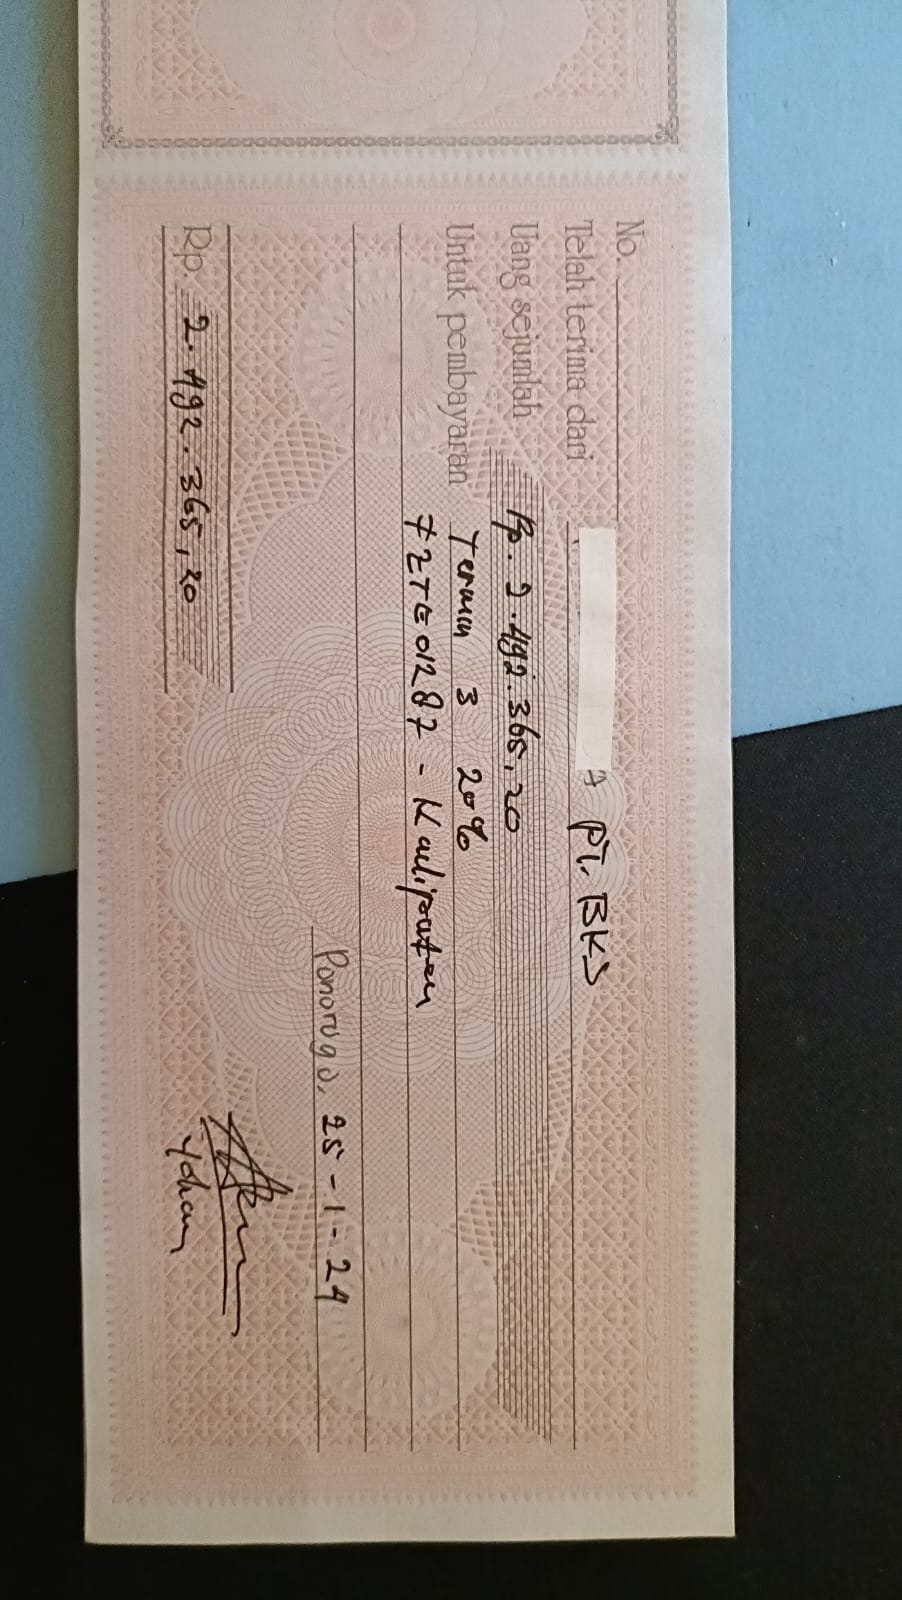 No.
Telah terima dari PT. BKS
Uang sejumlah Rp. 2.492.365,20
Untuk pembayaran Termin 3 20%
7ZTE01287 - Kadipaten
Ponorogo, 25-1-24
Rp. 2.492.365,20
Yohan